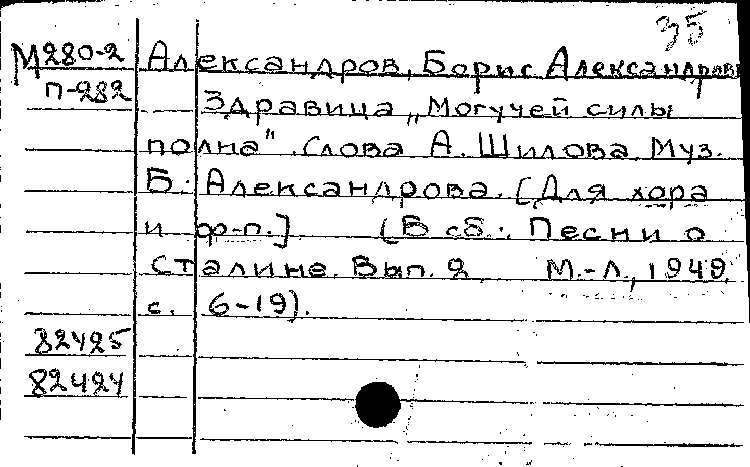 35
М280-2 Александров, Борис Александрови
П-282 Здравица „Могучей силы
полна". Слова А. Шилова. Муз.
Б. Александрова. [Для хора
и ф-п.] (В сб.: Песни о
Сталине. Вып. 2 М.-Л., 1949.
с. 6-19).
82425
82424